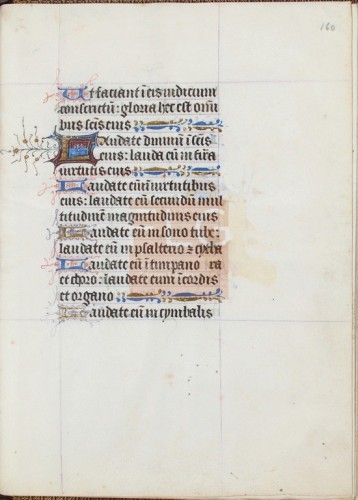 160
Ut faciant i eis iudicium
conscriptū: gloria hec est om̄i
bus scīs eius
Laudate dominū ī scīs
eius: laudate eū in firma
virtutis eius
Laudate eū ī virtutibus
eius: laudate eū secundū mul
titudinē magnitudinis eius
Laudate eū in sono tube:
laudate eū in psalterio ⁊ cytha
Laudate eū ī timpano ra
et choro: laudate eum ī cordis
et organo
Laudate eū in cymbalis